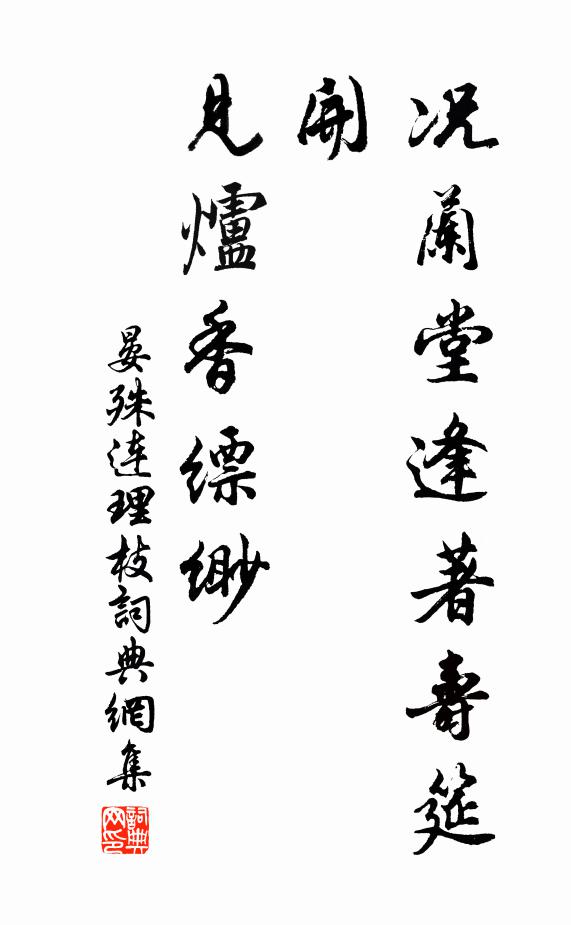 况蘭堂逢著壽筵
開
見爐香缥緲
晏殊连理枝詞典網集
詞典
网印